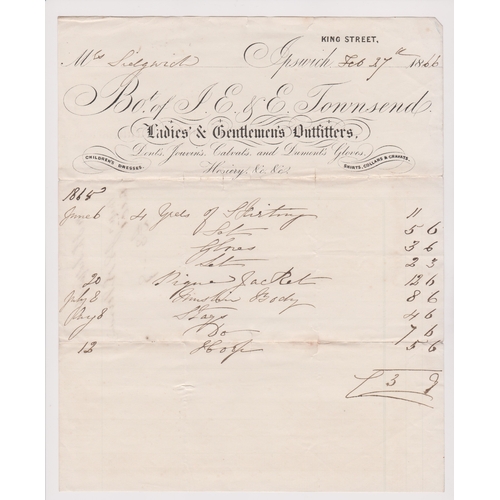 KING STREET,
Mrs Sidgwick Ipswich Feb 27th 1866
Bot. of J. E. & E. Townsend.
Ladies' & Gentlemen's Outfitters,
Dents, Jouvins, Calvats, and Dument's Gloves,
CHILDREN'S DRESSES, Hosiery, &c. &c. SHIRTS, COLLARS & CRAVATS,
1865
June 6 4 Yrds of Shirting 11
Set 5 6
Gloves 3 6
Set 2 3
20 Jacket 12 6
July 8 Muslin Body 8 6
July 8 Stays 4 6
Do 7 6
12 5 6
£ 3 9